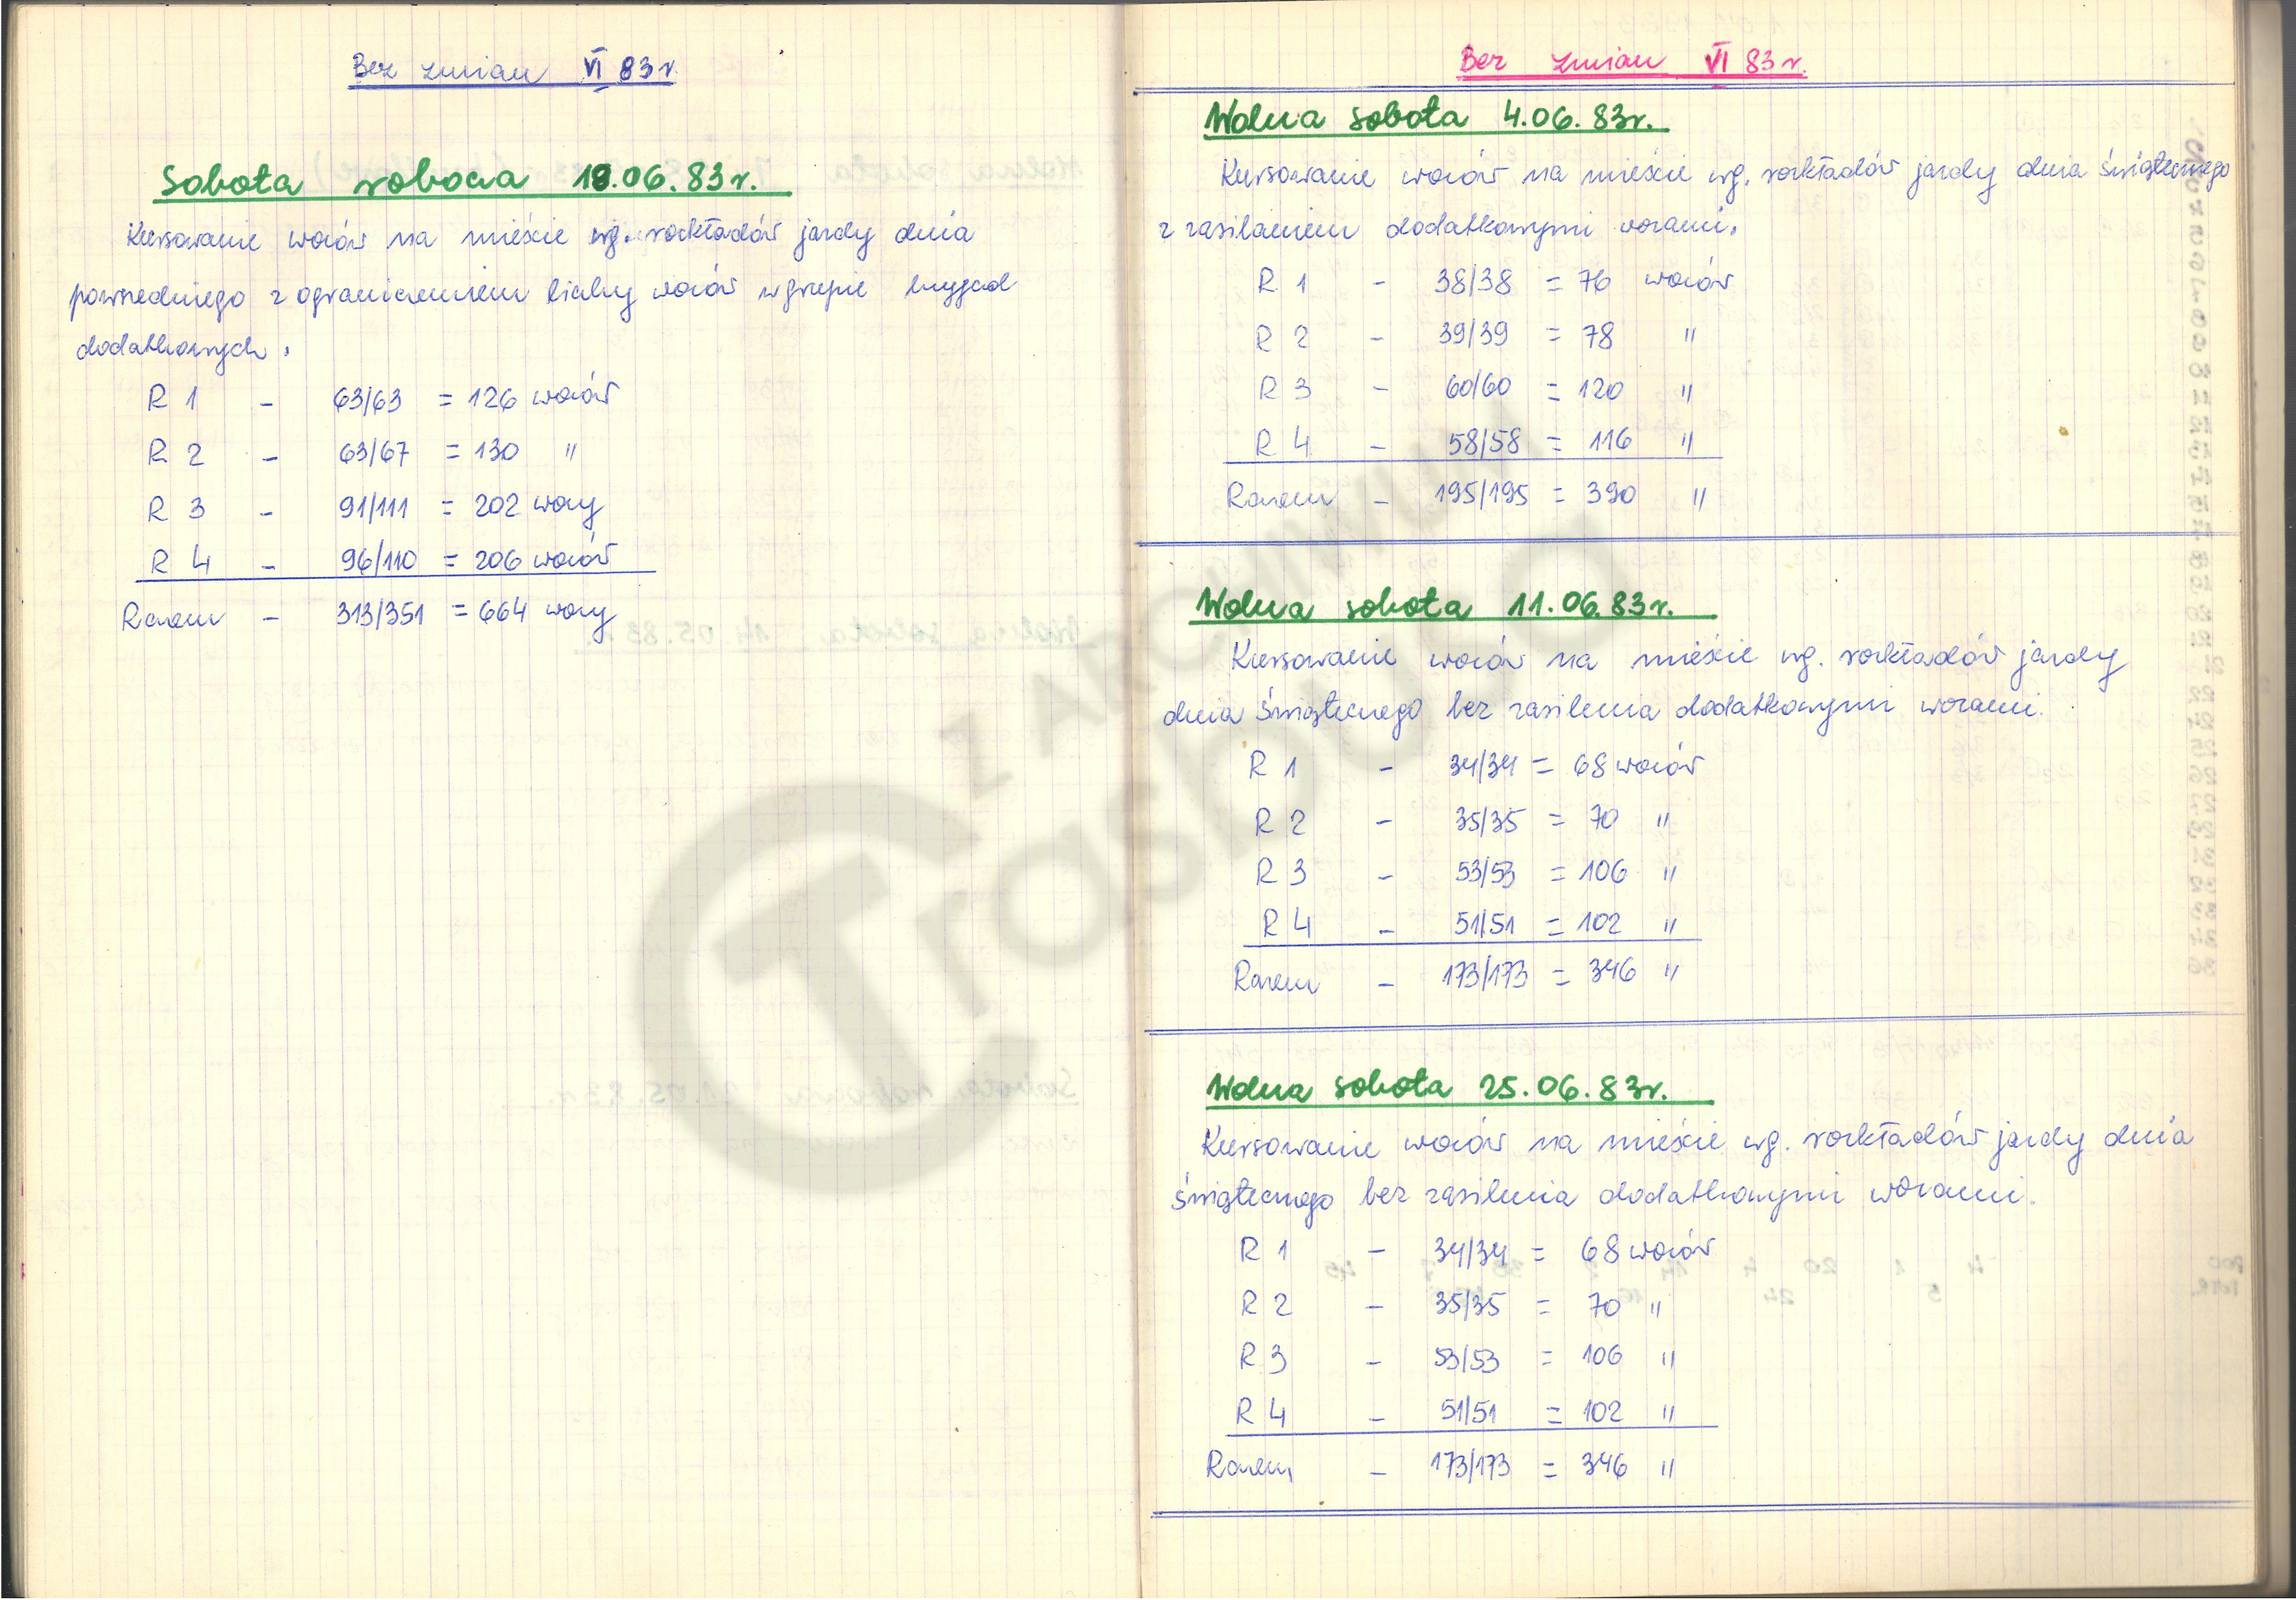 Bez zmian VI 83r.
Sobota robocza 18.06.83r.
Kursowanie wozów na mieście wg. rozkładów jazdy dnia
powszedniego z ograniczeniem liczby wozów w grupie brygad
dodatkowych.
R 1 - 63/63 = 126 wozów
R 2 - 63/67 = 130 "
R 3 - 91/111 = 202 wozy
R 4 - 96/110 = 206 wozów
Razem - 313/351 = 664 wozy
Bez zmian VI 83r.
Wolna sobota 4.06.83r.
Kursowanie wozów na mieście wg. rozkładów jazdy dnia świątecznego
z zasilaniem dodatkowymi wozami.
R 1 - 38/38 = 76 wozów
R 2 - 39/39 = 78 "
R 3 - 60/60 = 120 "
R 4 - 58/58 = 116 "
Razem - 195/195 = 390 "
Wolna sobota 11.06.83r.
Kursowanie wozów na mieście wg. rozkładów jazdy
dnia świątecznego bez zasilenia dodatkowymi wozami.
R 1 - 34/34 = 68 wozów
R 2 - 35/35 = 70 "
R 3 - 53/53 = 106 "
R 4 - 51/51 = 102 "
Razem - 173/173 = 346 "
Wolna sobota 25.06.83r.
Kursowanie wozów na mieście wg. rozkładów jazdy dnia
świątecznego bez zasilenia dodatkowymi wozami.
R 1 - 34/34 = 68 wozów
R 2 - 35/35 = 70 "
R 3 - 53/53 = 106 "
R 4 - 51/51 = 102 "
Razem - 173/173 = 346 "
Z ARCHIWUM
Trasbusa